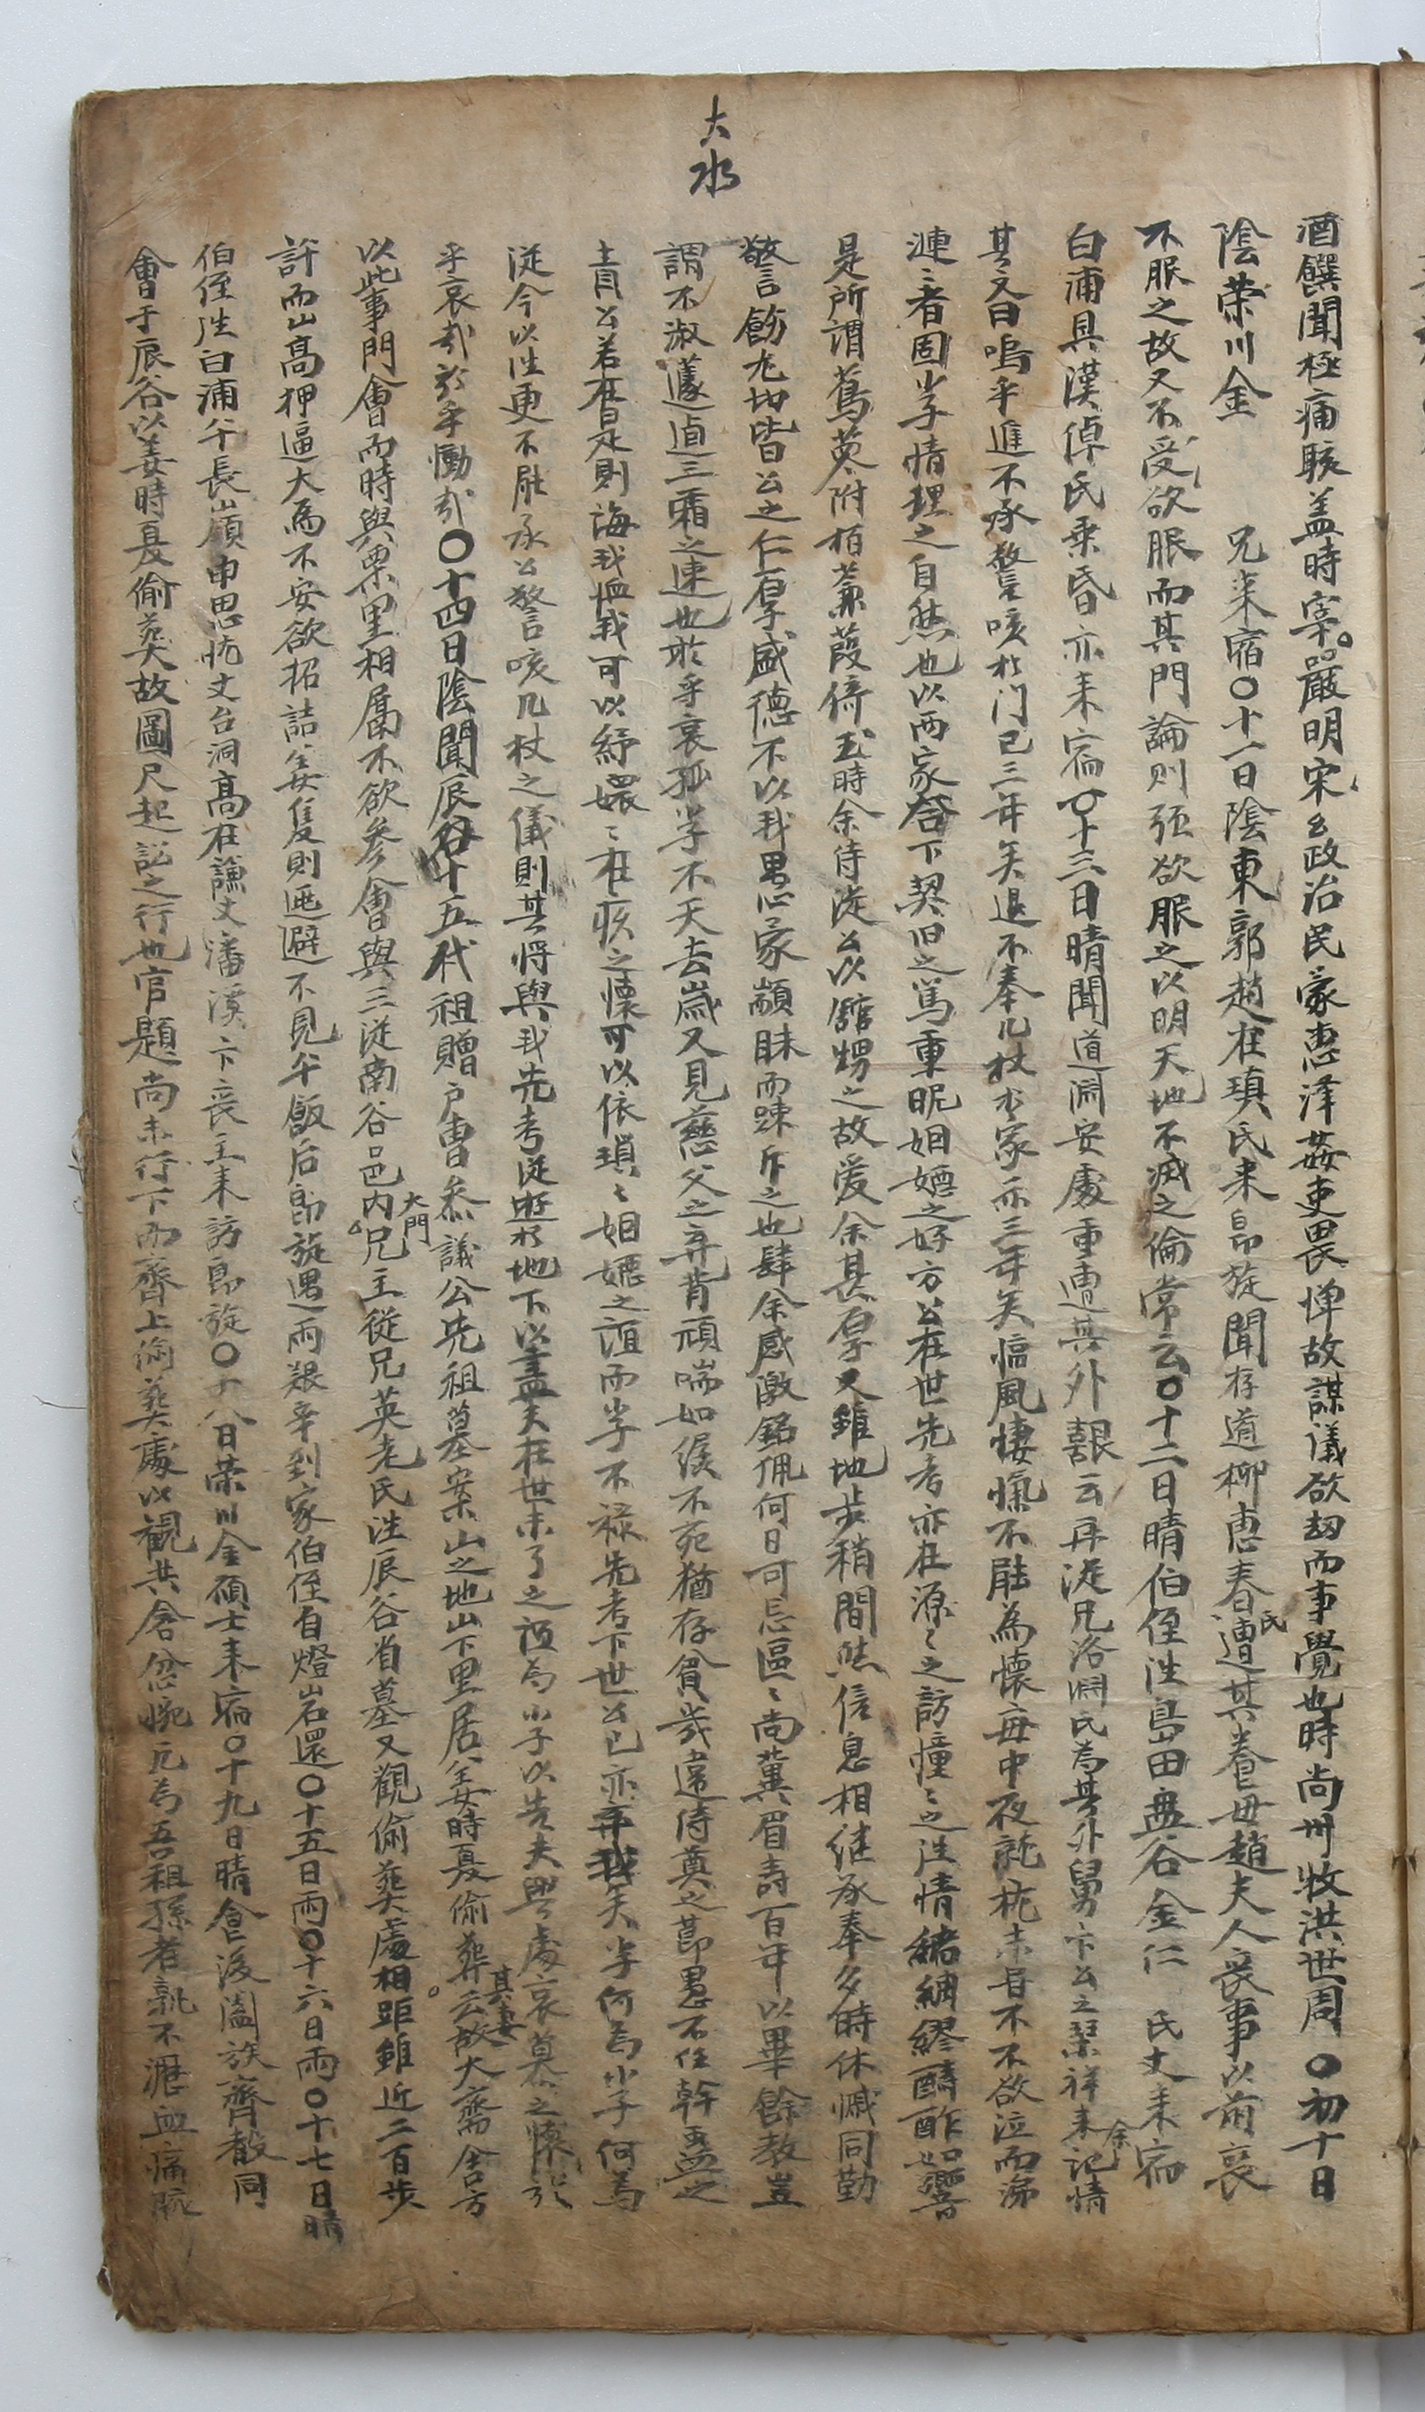 大水
酒饌聞極痛駭盖時宰嚴明宋公政治民蒙惠澤姦吏畏憚故謀議欲劫而事覺也時尚州牧洪世周○初十日
陰荣川金 兄来宿○十一日陰東郭趙在瑱氏来即旋聞存道柳惠春氏遭其養母趙夫人喪事以前喪
不服之故又不受欲服而其門論則强欲服之以明天地不滅之倫常云○十二日晴伯侄往島田盤谷金仁 氏丈来宿
白浦具漢倬氏乗昏亦来宿○十三日晴聞道淵安處重遭其外艱云再從兄洛淵氏為其外舅卞公之琹祥来記余情
其文曰嗚乎進不承謦咳於门已三年矣退不奉几杖於家亦三年矣愊風悽懍不能為懷每中夜就枕未甞不欲泣而涕
漣ミ者固出孚情理之自然也以两家答下契旧之篤重昵姻婭之好方公在世先考亦在源ミ之訪憧ミ之往情緒綢繆酬酢如響
是所謂蔦萝附栢蒹葭倚玉時余侍從公以舘甥之故爱余甚厚又雖地步稍間然信息相继承奉多時休慽同勤
警言飭尤切皆公之仁厚盛德不以我男恐家顓眛而踈斥之也肆余感激銘佩何日可忘區ミ尚冀眉壽百年以畢餘教豈
謂不淑遽逭三霜之速也於乎哀孤孚不天去歲又見慈父之弃背頑喘如縷不死猶存貧歲違侍奠之節愚不任幹蠱之
責公若在是則誨我恤我可以紓嬛ミ在疚之懷可以依瑣ミ姻婭之誼而孚不祿先考下世公已亦弃我矣孚何為小子何為
從今以往更不能承公謦咳几杖之儀則其将與我先考從遊於地下以盡夫在世未了之誼為小子以告夫與處哀慕之懷於
乎哀哉於乎慟哉○十四日陰聞辰谷十五代祖贈户曹叅議公先祖墓案山之地山下里居姜時憂偷葬其妻云故大齋舍方
以此事門會而時與栗里相屬不欲參會與三從南谷邑内大門兄主從兄英老氏往辰谷省墓又觀偷葬處相距雖近二百步
許而山高狎逼大為不安欲招詰姜隻則逥避不見午飯后即旋遇雨艱辛到家伯侄自燈岩還○十五日雨○十六日雨○十七日晴
伯侄往白浦午長嵓顧申思忱丈台洞高在謙丈潘溪卞喪主来訪即旋○十八日荣川金碩士来宿○十九日晴食後闔族齊散同
會于辰谷以姜時憂偷葬故圖尺起訟之行也官題尚未行下而齊上偷葬處以觀其舎忿惋凢為吾祖孫者孰不瀝血痛𦙶